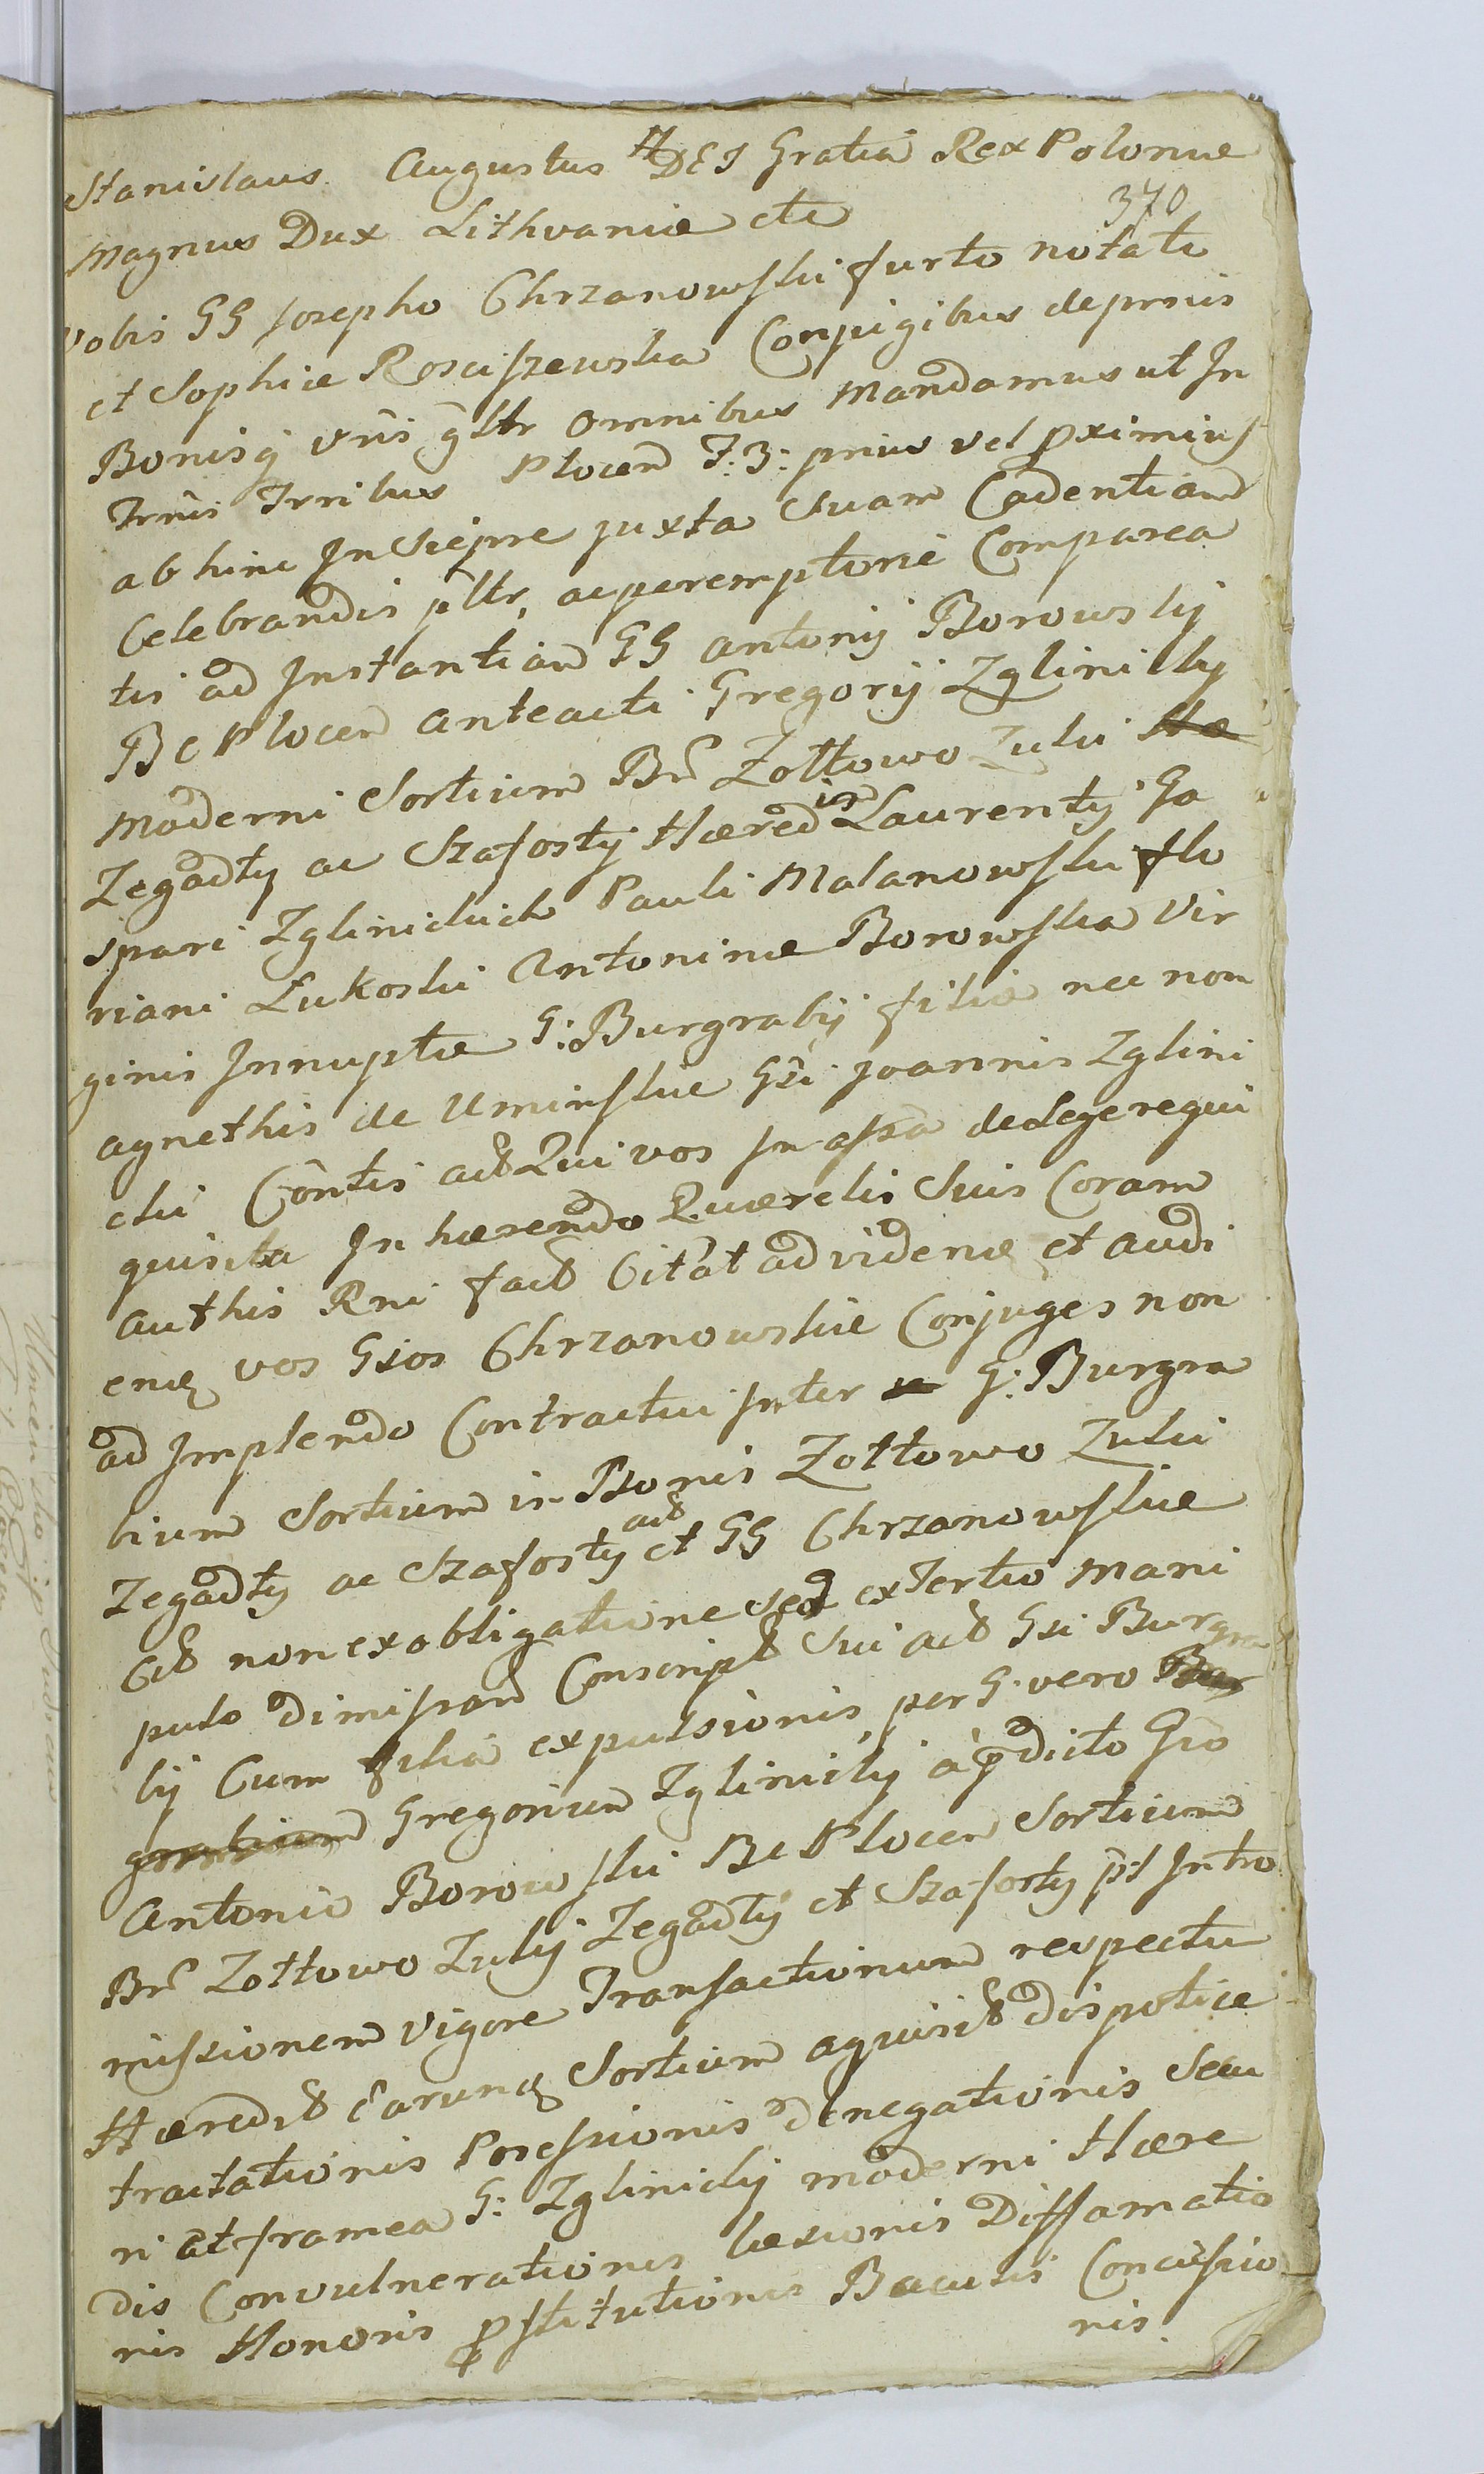 Stanislaus Augustus DEI Gratia Rex Poloniæ
370
Magnus Dux Lithvaniæ etc
Vobis GG Josepho Chrzanowski furto notato
et Sophiæ Rosciszewska Conjugibus de prnis
Bonisq vris gltr omnibus Mandamus ut In
Trnis Trribus Plocen F: 3: prius vel pximius
ab hinc In Sieprc juxta Suam Cadentiam
Celebrandis pltr, ac peremptorie Comparea
tis ad Instantiam GG Antonij Borowskij
B C Plocen anteacti Gregorij Zglinickij
Moderni Sortium Br Zołtowo Zuki
Zegadły ac Szafosty Hæred Laurentij Ga
spari Zglinickich Pauli Malanowski flo
riani Łukoski Antoninæ Borowska Vir
ginis Innuptæ G: Burgrabij filiæ nec non
agnethis de Uminskie Gsi Joannis Zglini
cki Contis actt Qui vos In assa de Lege requi
quisita In hærendo Querelis Suis Coram
Authis Rni factt Citat ad videnq et audi
enq vos Gsos Chrzanowskie Conjuges non
ad Implendo Contractui Inter G: Burgra
bium Sortium in Bonis Zołtowo Zuki
Zegadły ac Szafosty actt et GG Chrzanowskie
Citt non ex obligatione sed ex Tertio Mani
pulo dimissam Conscriptt Sui actt Gsi Burgra
bij Cum filia expulsionis, per G: vero
Gregorium Zglinickij à pdicto Gso
Antonio Borowski B C Plocen Sortium
Br Zołtowo Zukij Zegadły et Szafosty pst Intro
missionem Vigore Transactionum respectu
Hæreditt earunq Sortium aquisitt dispotice
tractationis Posessionis denegationis Secu
ri at framea G: Zglinickij moderni Hære
dis Convulnerationis læsionis Diffamatio
nis Honoris pstitutionis Baculis Concussio
nis.